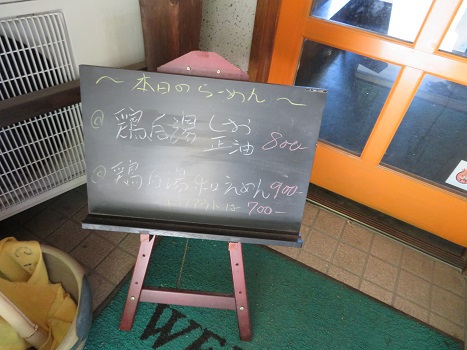 ～本日のらーめん～
◎鶏白湯 しお
正油 800
◎鶏白湯辛口らーめん900-
は700-
WE